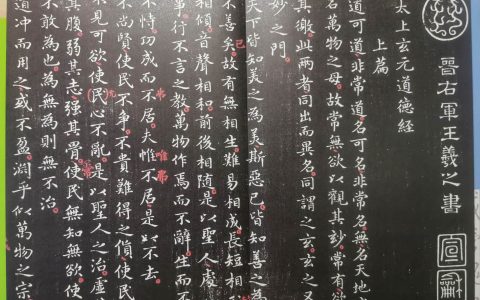 晉右軍王羲之書
太上玄元道德經
上篇
道可道非常道名可名非常名無名天地
名萬物之母故常無欲以觀其妙常有欲
其徼此兩者同出而異名同謂之玄玄之又
妙之門
天下皆知美之為美斯惡已皆知善之為
不善矣故有無相生難易相成長短相
相傾音聲相和前後相隨是以聖人處
事行不言之教萬物作焉而不辭生而不
不恃功成而不居夫惟不居是以不去
不尚賢使民不爭不貴難得之貨使民
不見可欲使民心不亂是以聖人之治虛
其腹弱其志强其骨使民無知無欲使
不敢為也為無為則無不治
道沖而用之或不盈淵乎似萬物之宗